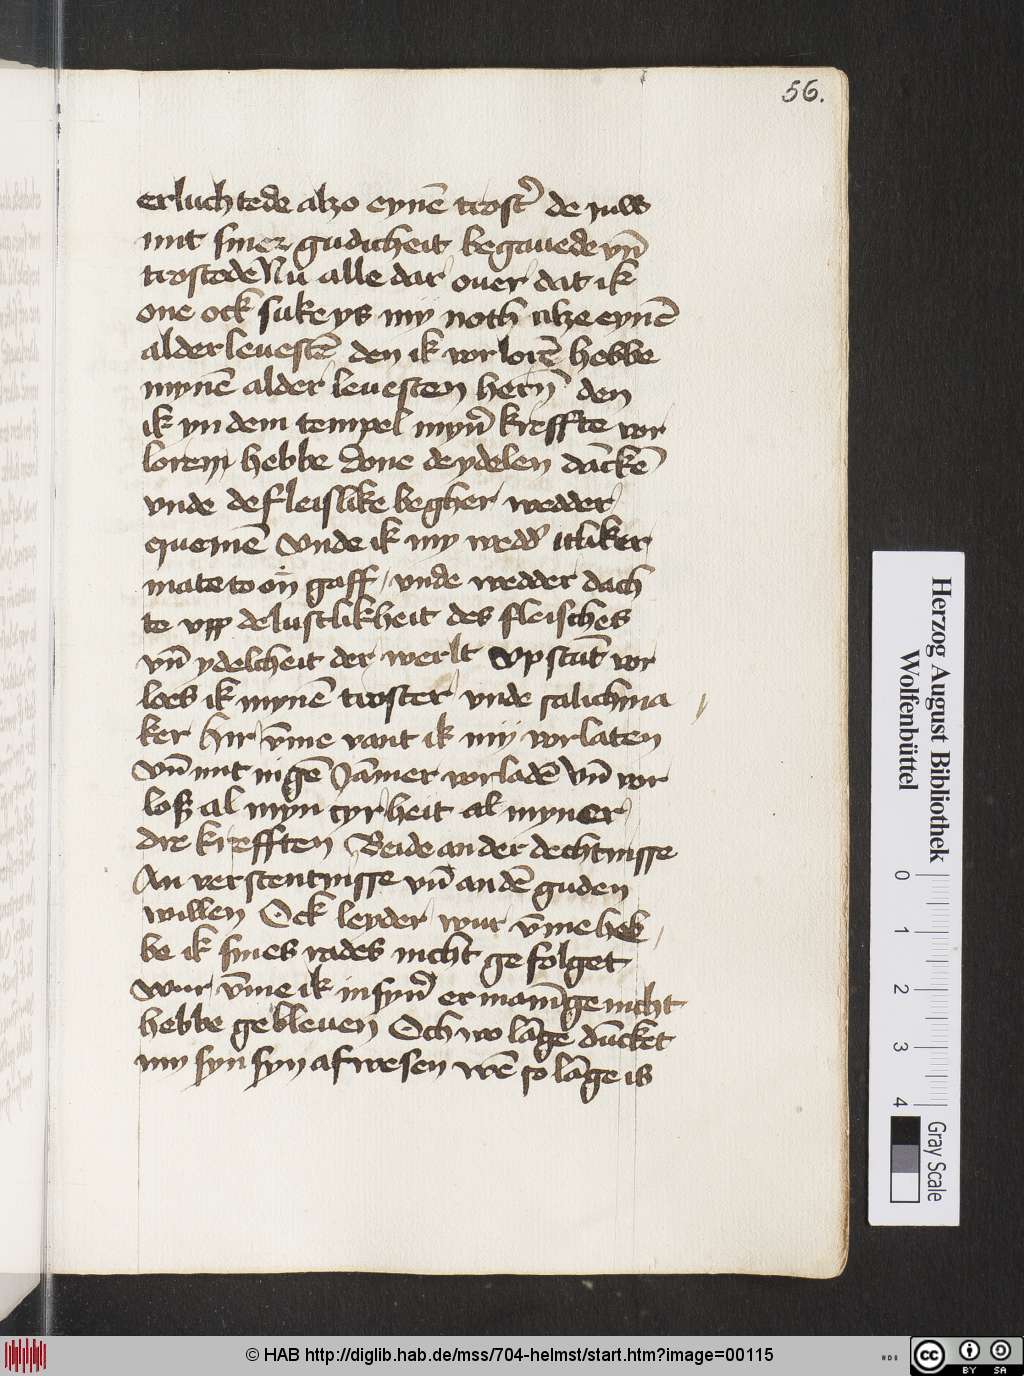 56.
erluchtede alzo eynē trost' de juw
mit siner gudicheit begauede vn̄
trostede Nu alle dar ouer dat ik
one ock suke ys my noth alze eynē
alderleuestē den ik vorlorē hebbe
mynē alder leuesten hern̄ den
ik yn dem tempel myn' kreffte vor
loren hebbe Done de ydelen danckē
vnde de fleislike begher wedder
quemē Vnde ik my wedd' itliker
mate to on gaff vnde wedder dach
te vpp de lustlikheit des fleisches
vn̄ ydelcheit der werlt vp stūt vor
loes ik mynē troster vnde salichma
ker Hir v̄me vant ik my vorlaten
Vn̄ mit nigē Jāmer vorladē Vn̄ vor
loß al myn tyrheit al myner
dre krefften Beide an der dechtnisse
An verstentnisse vn̄ an dē guden
willen Ock leyder wur v̄me heb
be ik sines rades nicht gefolget
Wur v̄me ik in syn' ermanīge nicht
hebbe gebleuen Och wo lāge dūcket
my syn syn afwesen wē so lāge is
Herzog August Bibliothek
Wolfenbüttel
0 1 2 3 4
Gray Scale
© HAB http://diglib.hab.de/mss/704-helmst/start.htm?image=00115
HAB
cc BY SA